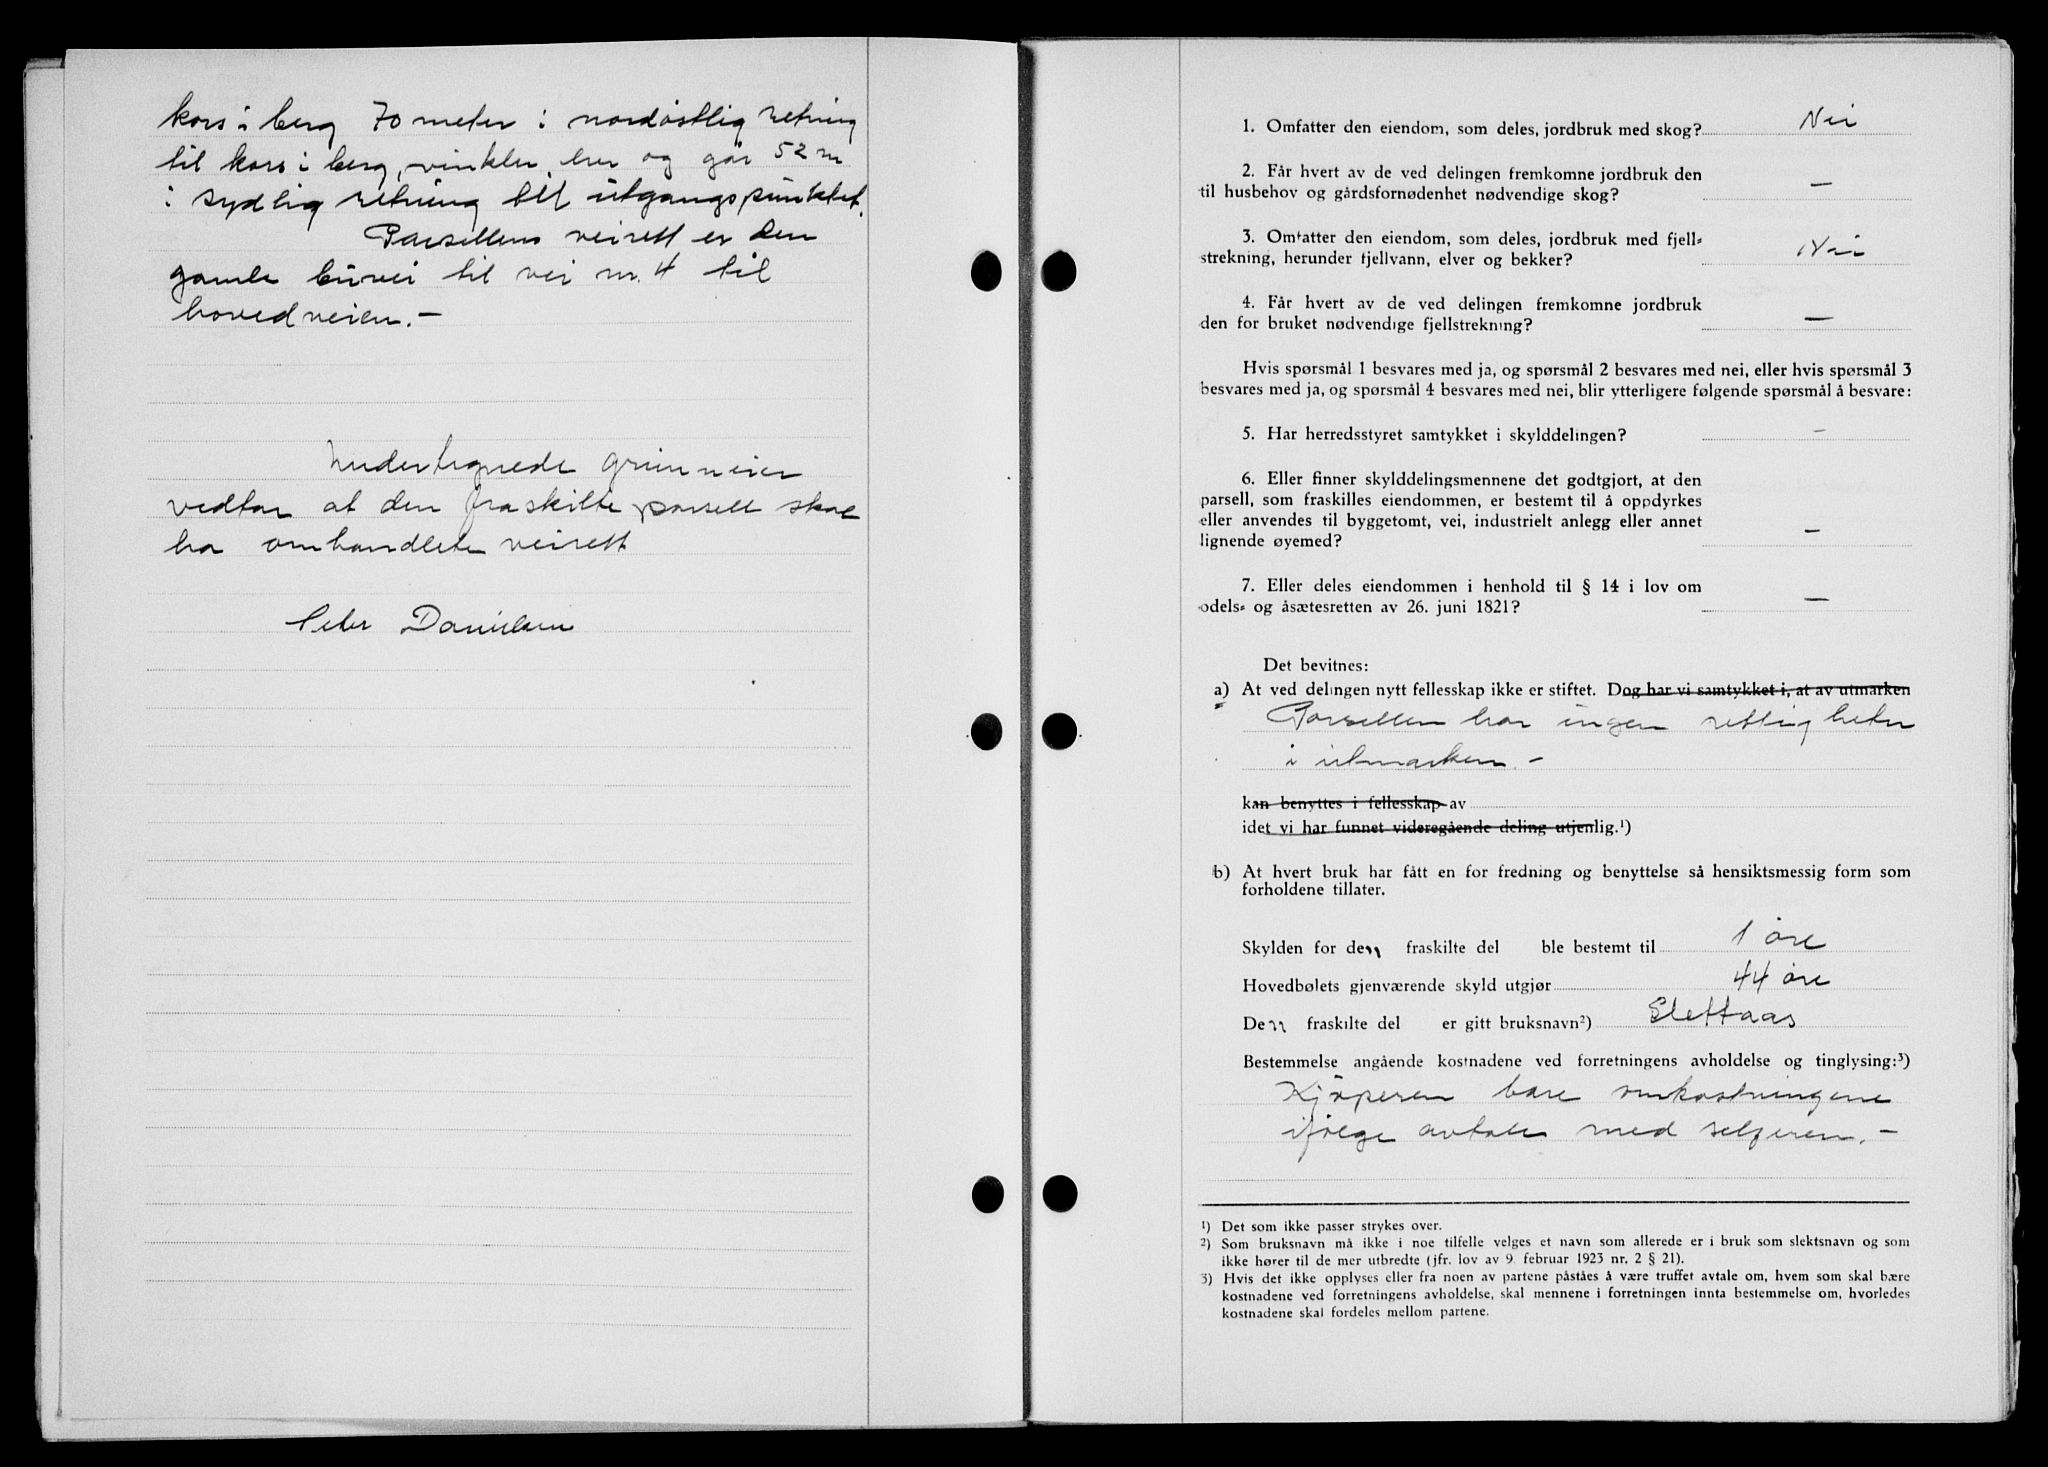 kors i berg 70 meter i nordøstlig retning
til kors i berg, vinkler her og går 52 m
i sydlig retning til utgangspunktet.
Parsellens veirett er den
gamle buvei til vei nr. 4 til
hovedveien.-
Undertegnede grunneier
vedtar at den fraskilte parsell skal
ha omhandlete veirett
Peter Danielsen
1. Omfatter den eiendom, som deles, jordbruk med skog? Nei
2. Får hvert av de ved delingen fremkomne jordbruk den
til husbehov og gårdsfornødenhet nødvendige skog? —
3. Omfatter den eiendom, som deles, jordbruk med fjell-
strekning, herunder fjellvann, elver og bekker? Nei
4. Får hvert av de ved delingen fremkomne jordbruk
den for bruket nødvendige fjellstrekning? —
Hvis spørsmål 1 besvares med ja, og spørsmål 2 besvares med nei, eller hvis spørsmål 3
besvares med ja, og spørsmål 4 besvares med nei, blir ytterligere følgende spørsmål å besvare:
5. Har herredsstyret samtykket i skylddelingen? —
6. Eller finner skylddelingsmennene det godtgjort, at den
parsell, som fraskilles eiendommen, er bestemt til å oppdyrkes
eller anvendes til byggetomt, vei, industrielt anlegg eller annet
lignende øyemed? —
7. Eller deles eiendommen i henhold til § 14 i lov om
odels- og åsætesretten av 26. juni 1821? —
Det bevitnes:
a) At ved delingen nytt fellesskap ikke er stiftet. Dog har vi samtykket i, at av utmarken
Parsellen har ingen rettigheter
i utmarken.-
kan benyttes i fellesskap av
idet vi har funnet videregående deling utjenlig.¹)
b) At hvert bruk har fått en for fredning og benyttelse så hensiktsmessig form som
forholdene tillater.
Skylden for den fraskilte del ble bestemt til 1 øre
Hovedbølets gjenværende skyld utgjør 44 øre
Den fraskilte del er gitt bruksnavn²) Slettaas
Bestemmelse angående kostnadene ved forretningens avholdelse og tinglysing:³)
Kjøperen bære omkostningene
ifølge avtale med selgeren.-
¹) Det som ikke passer strykes over.
²) Som bruksnavn må ikke i noe tilfelle velges et navn som allerede er i bruk som slektsnavn og som
ikke hører til de mer utbredte (jfr. lov av 9. februar 1923 nr. 2 § 21).
³) Hvis det ikke opplyses eller fra noen av partene påståes å være truffet avtale om, hvem som skal bære
kostnadene ved forretningens avholdelse, skal mennene i forretningen innta bestemmelse om, hvorledes
kostnadene skal fordeles mellom partene.